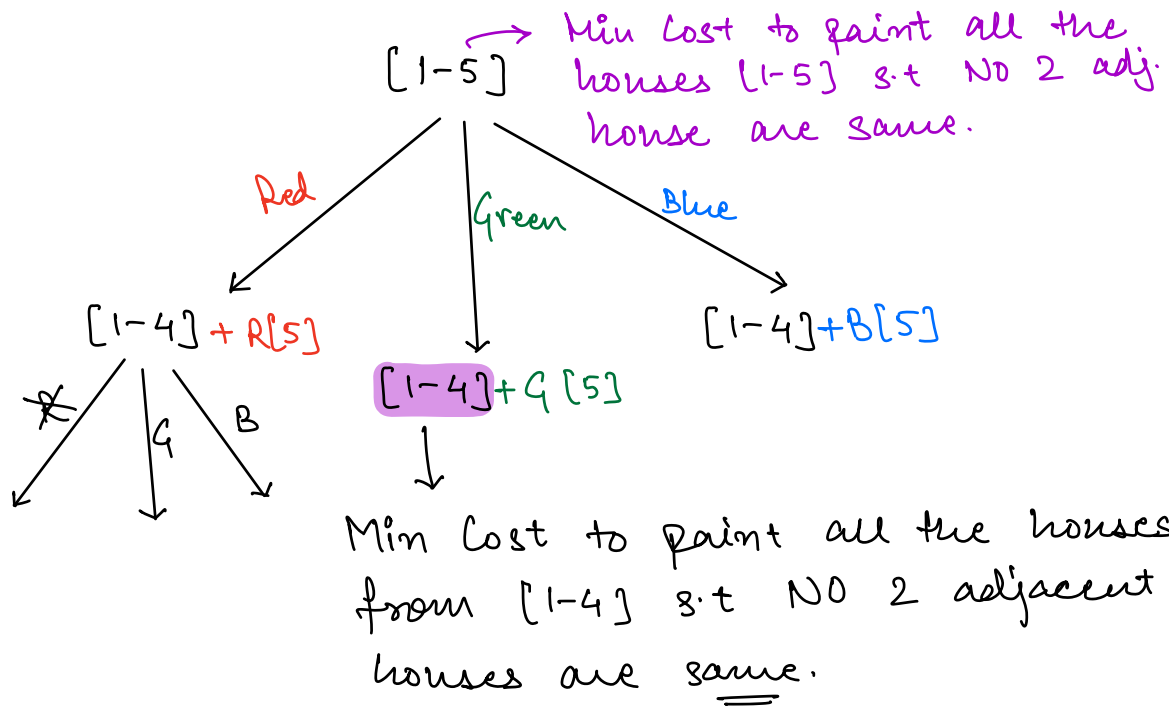 Min Cost to paint all the
[1-5]
houses [1-5] s.t NO 2 adj.
house are same.
Red
Green
Blue
[1-4] + R[5]
[1-4] + G [5]
[1-4] + B[5]
R
G
B
Min Cost to paint all the houses
from [1-4] s.t NO 2 adjacent
houses are same.